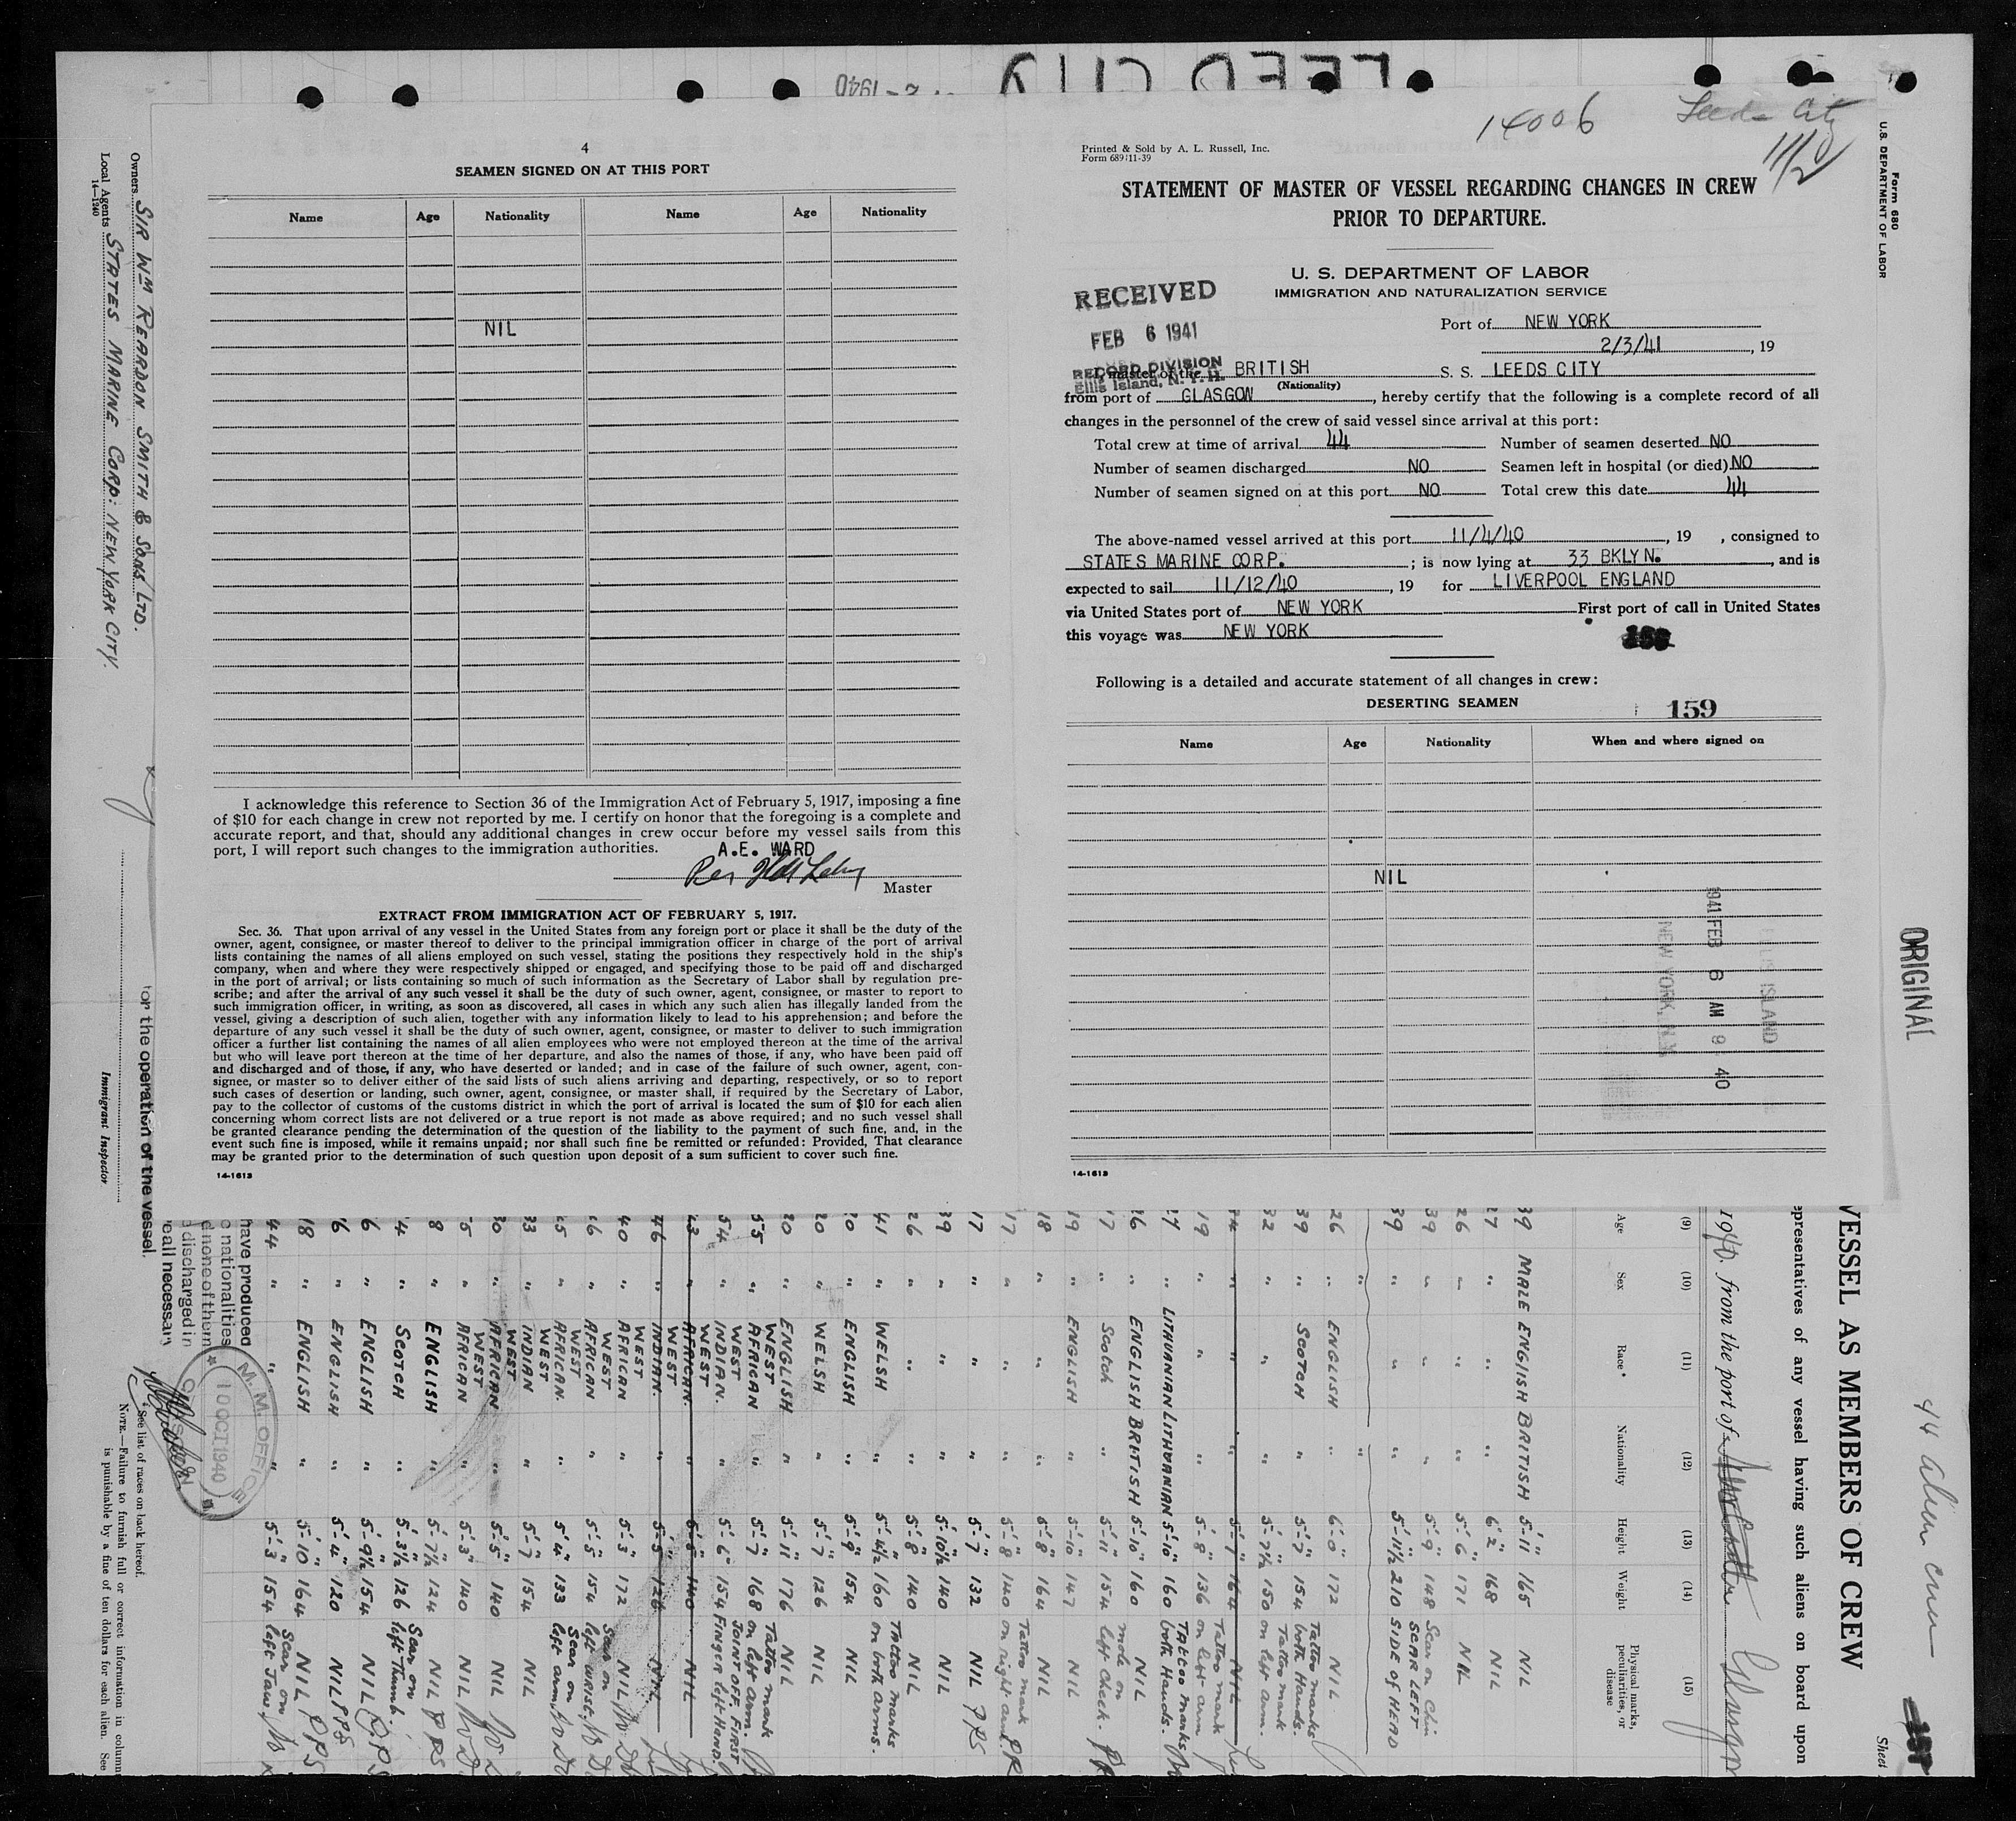 LEED CITY
1940
14006
Leeds City
11/2
4
SEAMEN SIGNED ON AT THIS PORT
Name Age Nationality Name Age Nationality
NIL
I acknowledge this reference to Section 36 of the Immigration Act of February 5, 1917, imposing a fine
of $10 for each change in crew not reported by me. I certify on honor that the foregoing is a complete and
accurate report, and that, should any additional changes in crew occur before my vessel sails from this
port, I will report such changes to the immigration authorities.
A.E. WARD
Per
Master
EXTRACT FROM IMMIGRATION ACT OF FEBRUARY 5, 1917.
Sec. 36. That upon arrival of any vessel in the United States from any foreign port or place it shall be the duty of the
owner, agent, consignee, or master thereof to deliver to the principal immigration officer in charge of the port of arrival
lists containing the names of all aliens employed on such vessel, stating the positions they respectively hold in the ship's
company, when and where they were respectively shipped or engaged, and specifying those to be paid off and discharged
in the port of arrival; or lists containing so much of such information as the Secretary of Labor shall by regulation pre-
scribe; and after the arrival of any such vessel it shall be the duty of such owner, agent, consignee, or master to report to
such immigration officer, in writing, as soon as discovered, all cases in which any such alien has illegally landed from the
vessel, giving a description of such alien, together with any information likely to lead to his apprehension; and before the
departure of any such vessel it shall be the duty of such owner, agent, consignee, or master to deliver to such immigration
officer a further list containing the names of all alien employees who were not employed thereon at the time of the arrival
but who will leave port thereon at the time of her departure, and also the names of those, if any, who have been paid off
and discharged and of those, if any, who have deserted or landed; and in case of the failure of such owner, agent, con-
signee, or master so to deliver either of the said lists of such aliens arriving and departing, respectively, or so to report
such cases of desertion or landing, such owner, agent, consignee, or master shall, if required by the Secretary of Labor,
pay to the collector of customs of the customs district in which the port of arrival is located the sum of $10 for each alien
concerning whom correct lists are not delivered or a true report is not made as above required; and no such vessel shall
be granted clearance pending the determination of the question of the liability to the payment of such fine, and, in the
event such fine is imposed, while it remains unpaid; nor shall such fine be remitted or refunded: Provided, That clearance
may be granted prior to the determination of such question upon deposit of a sum sufficient to cover such fine.
14-1613
Printed & Sold by A. L. Russell, Inc.
Form 689 11-39
STATEMENT OF MASTER OF VESSEL REGARDING CHANGES IN CREW
PRIOR TO DEPARTURE.
U. S. DEPARTMENT OF LABOR
IMMIGRATION AND NATURALIZATION SERVICE
RECEIVED
FEB 6 1941
RECORD DIVISION
Ellis Island, N. Y. H.
Port of NEW YORK
2/3/41, 19
I, master of the BRITISH S. S. LEEDS CITY
(Nationality)
from port of GLASGOW, hereby certify that the following is a complete record of all
changes in the personnel of the crew of said vessel since arrival at this port:
Total crew at time of arrival 44 Number of seamen deserted NO
Number of seamen discharged NO Seamen left in hospital (or died) NO
Number of seamen signed on at this port NO Total crew this date 44
The above-named vessel arrived at this port 11/4/40, 19 , consigned to
STATES MARINE CORP. ; is now lying at 33 BKLYN. , and is
expected to sail 11/12/40, 19 for LIVERPOOL ENGLAND
via United States port of NEW YORK First port of call in United States
this voyage was NEW YORK
Following is a detailed and accurate statement of all changes in crew:
DESERTING SEAMEN
159
Name Age Nationality When and where signed on
NIL
1941 FEB 6 AM 9 40
ELLIS ISLAND
NEW YORK, N.Y.
14-1613
Form 680
U.S. DEPARTMENT OF LABOR
ORIGINAL
44 alien crew
Sheet
VESSEL AS MEMBERS OF CREW
epresentatives of any vessel having such aliens on board upon
1940. from the port of Glasgow
(9) (10) (11) (12) (13) (14) (15)
Age Sex Race* Nationality Height Weight Physical marks, peculiarities, or disease
39 MALE ENGLISH BRITISH 5-11 165 NIL
27 " " " 6-2 168 NIL
26 " " " 5-6 171 NIL
39 " " " 5-9 148 Scar on Chin
39 " " " 5-11½ 210 SCAR LEFT SIDE OF HEAD
26 " ENGLISH " 6-0 172 NIL
39 " SCOTCH " 5-7 154 Tattoo marks both Hands.
32 " " " 5-7½ 150 Tattoo mark on left arm.
" " " 164 NIL
19 " " " 5-8 136 Tattoo mark on left arm
27 " LITHUANIAN LITHUANIAN 5-10 160 Tattoo marks both Hands.
26 " ENGLISH BRITISH 5-10 160 NIL
17 " Scotch " 5-11 154 mole on left cheek.
19 " ENGLISH " 5-10 147 NIL
18 " " " 5-8 164 NIL
17 " " " 5-8 140 Tattoo mark on right arm
17 " " " 5-7 132 NIL
39 " " " 5-10½ 140 NIL
26 " " " 5-8 140 NIL
41 " WELSH " 5-4½ 160 Tattoo marks on both arms.
20 " ENGLISH " 5-9 154 NIL
20 " WELSH " 5-7 126 NIL
20 " ENGLISH " 5-11 176 NIL
55 " WEST AFRICAN " 5-7 168 Tattoo mark on left arm.
54 " WEST INDIAN. " 5-6 154 JOINT OFF FIRST FINGER left HAND.
" WEST AFRICAN. " 140 NIL
46 " WEST INDIAN. " 5-5 NIL
40 " WEST AFRICAN " 5-3 172 NIL
26 " WEST AFRICAN " 5-5 154 Scar on left WRIST.
" WEST AFRICAN. " 5-4 133 Scar on left arm
33 " WEST INDIAN " 5-7 154 NIL
30 " WEST AFRICAN " 5-5 140 NIL
" WEST AFRICAN " 5-3 140 NIL
8 " ENGLISH " 5-7½ 124 NIL
4 " SCOTCH " 5-3½ 126 Scar on left Thumb.
6 " ENGLISH " 5-9½ 154 NIL
6 " ENGLISH " 5-4 120 NIL
18 " ENGLISH " 5-10 164 NIL
44 " " " 5-3 154 Scar on left Jaw.
have produced
nationalities
d none of them
discharged in
all necessary
for the operation of the vessel.
M. M. OFFICE
10 OCT 1940
*See list of races on back hereof.
NOTE.—Failure to furnish full or correct information in column
is punishable by a fine of ten dollars for each alien. See
Owners SIR Wm REARDON SMITH & SONS LTD.
Local Agents STATES MARINE CORP: NEW YORK CITY.
14—1240
Immigrant Inspector